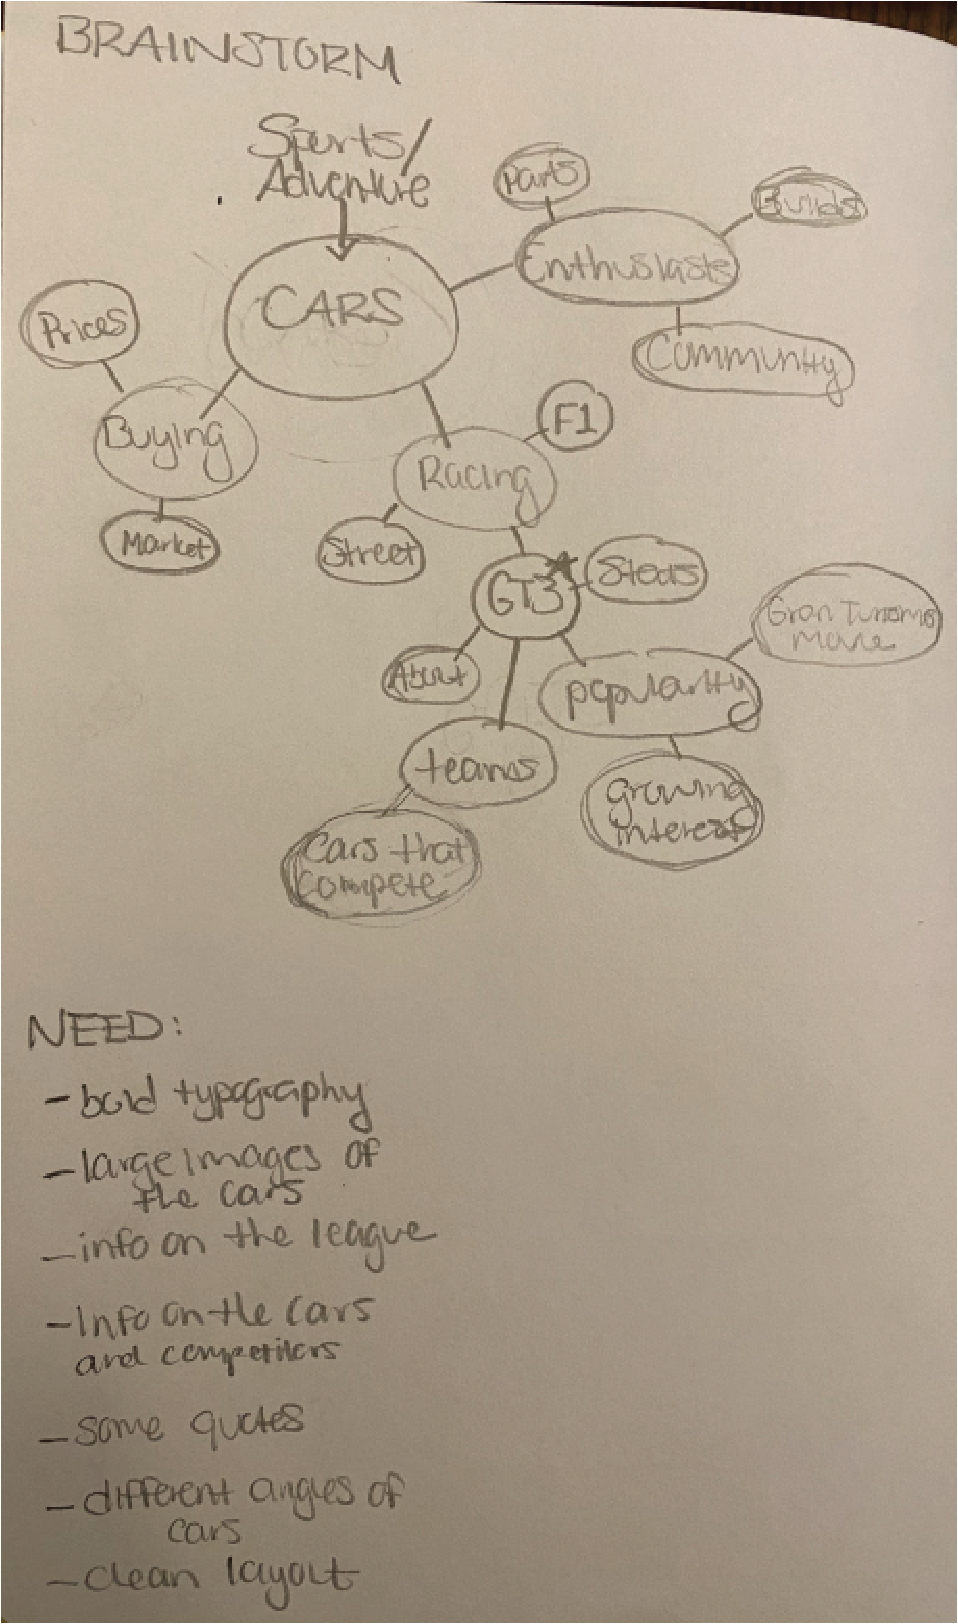 BRAINSTORM
Sports/
Adventure
Parts
Builds
Enthusiasts
CARS
Prices
Community
Buying
F1
Racing
Market
Street
GT3
Gran Turismo
Movie
About
popularity
teams
growing
interest
Cars that
compete
NEED:
- bold typography
- large images of
the cars
- info on the league
- Info on the cars
and competitors
- some quotes
- different angles of
cars
- clean layout